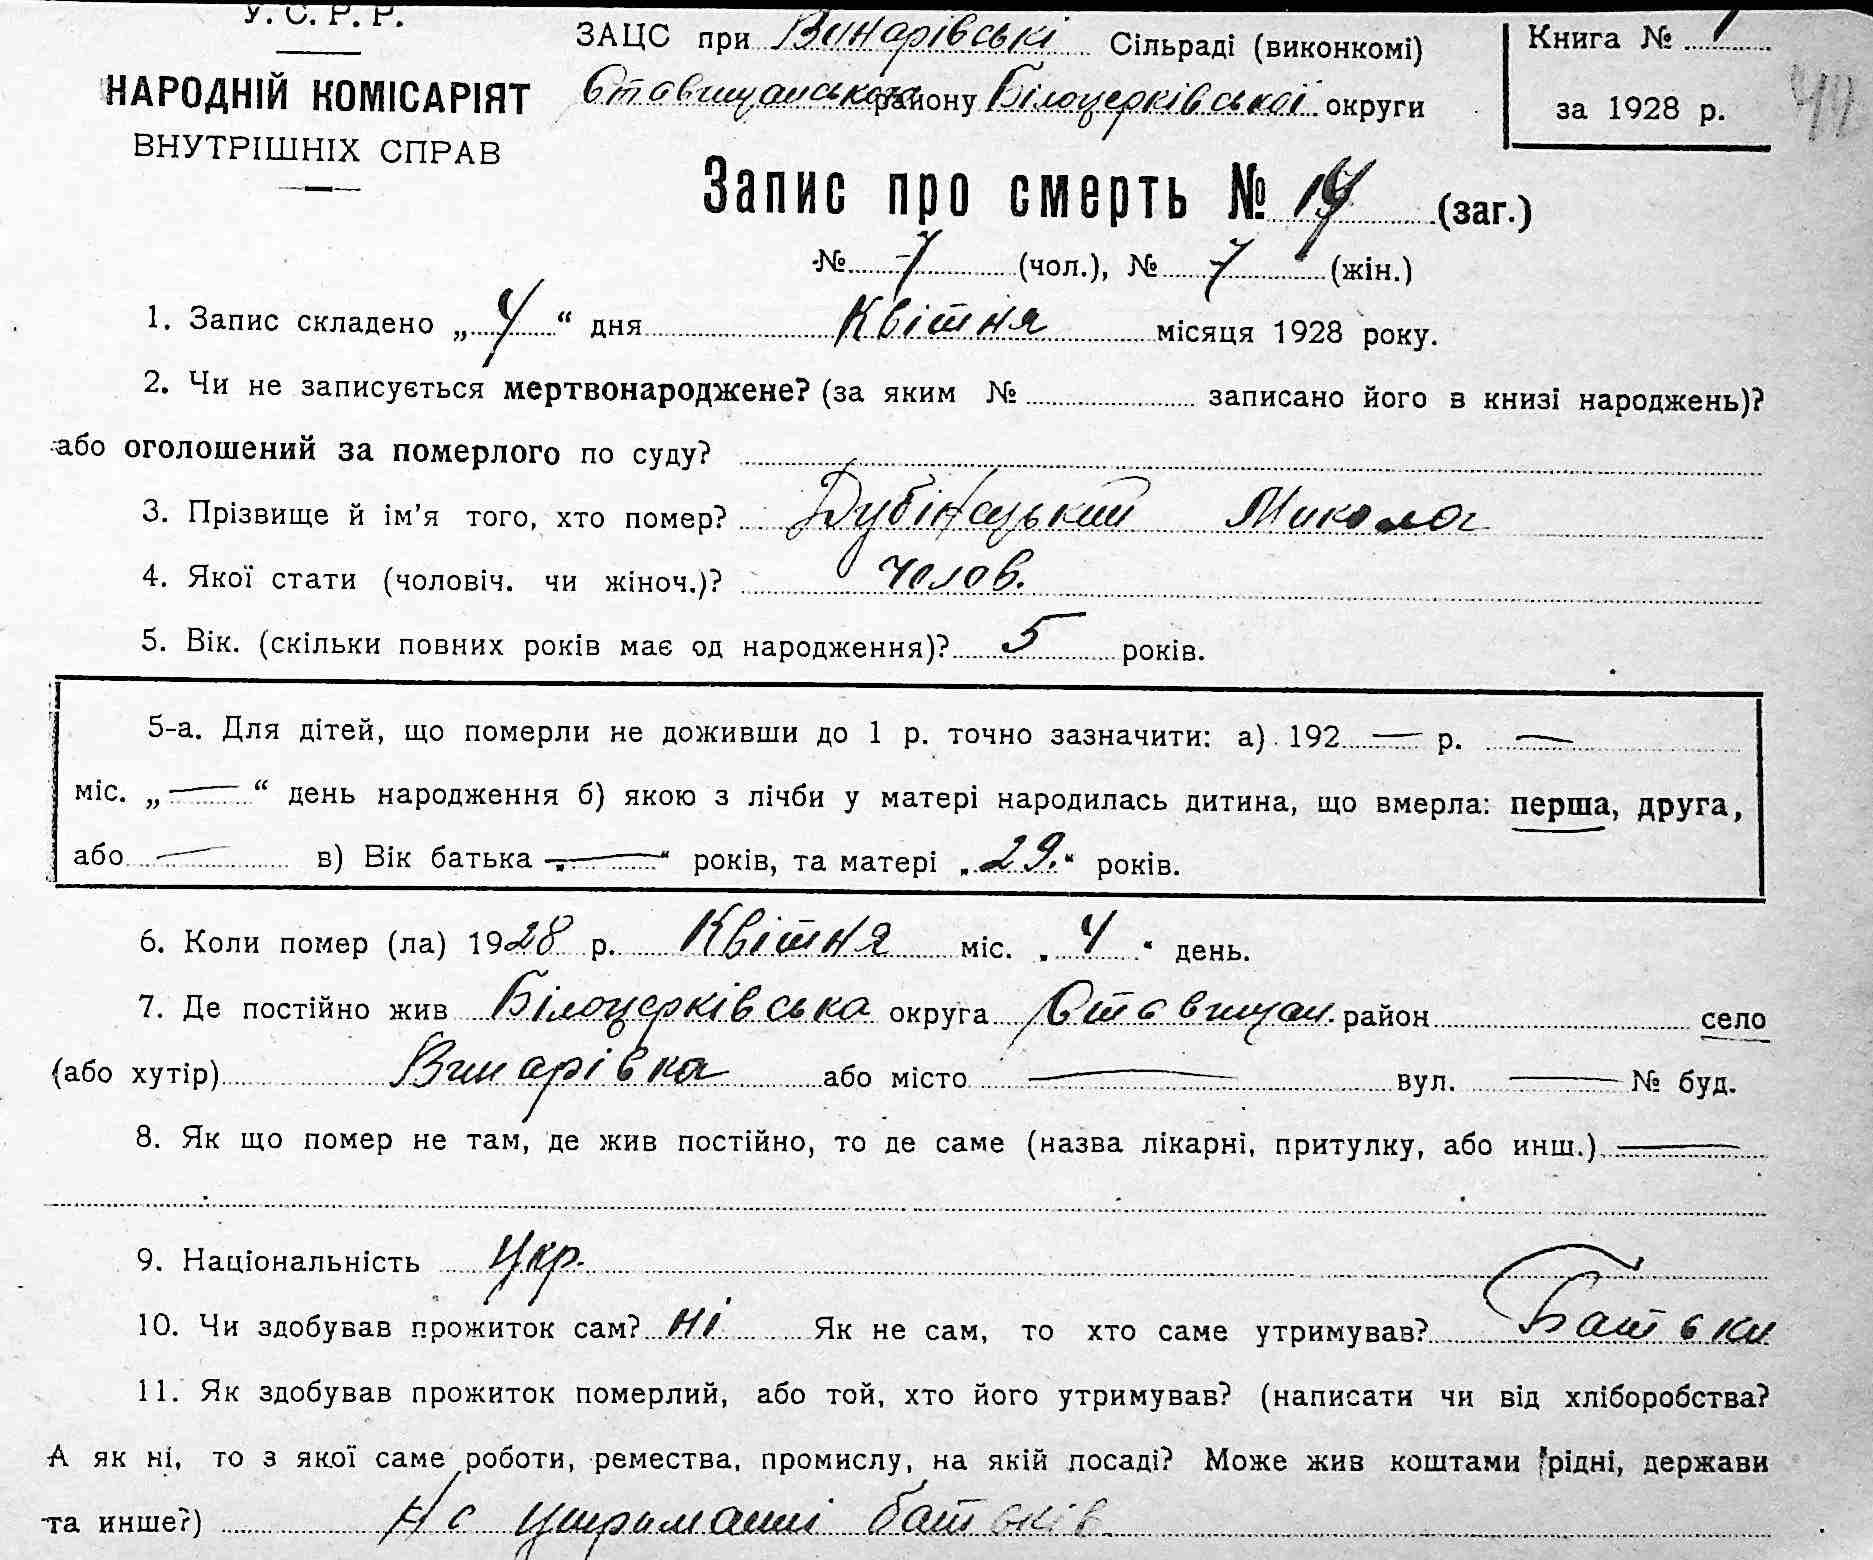 У. С. Р. Р.
НАРОДНІЙ КОМІСАРІЯТ
ВНУТРІШНІХ СПРАВ
ЗАЦС при Винарівські Сільраді (виконкомі)
Ставищанського району Білоцерківської округи
Книга № 1
за 1928 р.
Запис про смерть № (заг.)
№ 7 (чол.), № 7 (жін.)
1. Запис складено „4“ дня Квітня місяця 1928 року.
2. Чи не записується мертвонароджене? (за яким № записано його в книзі народжень)?
або оголошений за померлого по суду?
3. Прізвище й ім'я того, хто помер? Микола
4. Якої стати (чоловіч. чи жіноч.)? Челов.
5. Вік. (скільки повних років має од народження)? 5 років.
5-а. Для дітей, що померли не доживши до 1 р. точно зазначити: а) 192 — р. —
міс. „—“ день народження б) якою з лічби у матері народилась дитина, що вмерла: перша, друга,
або — в) Вік батька „—“ років, та матері „29.“ років.
6. Коли помер (ла) 1928 р. Квітня міс. „4“ день.
7. Де постійно жив Білоцерківська округа Ставищан. район село
(або хутір) Винарівка або місто — вул. — № буд.
8. Як що помер не там, де жив постійно, то де саме (назва лікарні, притулку, або инш.) —
9. Національність Укр.
10. Чи здобував прожиток сам? ні Як не сам, то хто саме утримував? Батьки
11. Як здобував прожиток померлий, або той, хто його утримував? (написати чи від хліборобства?
А як ні, то з якої саме роботи, ремества, промислу, на якій посаді? Може жив коштами рідні, держави
та инше?) На утриманні батьків